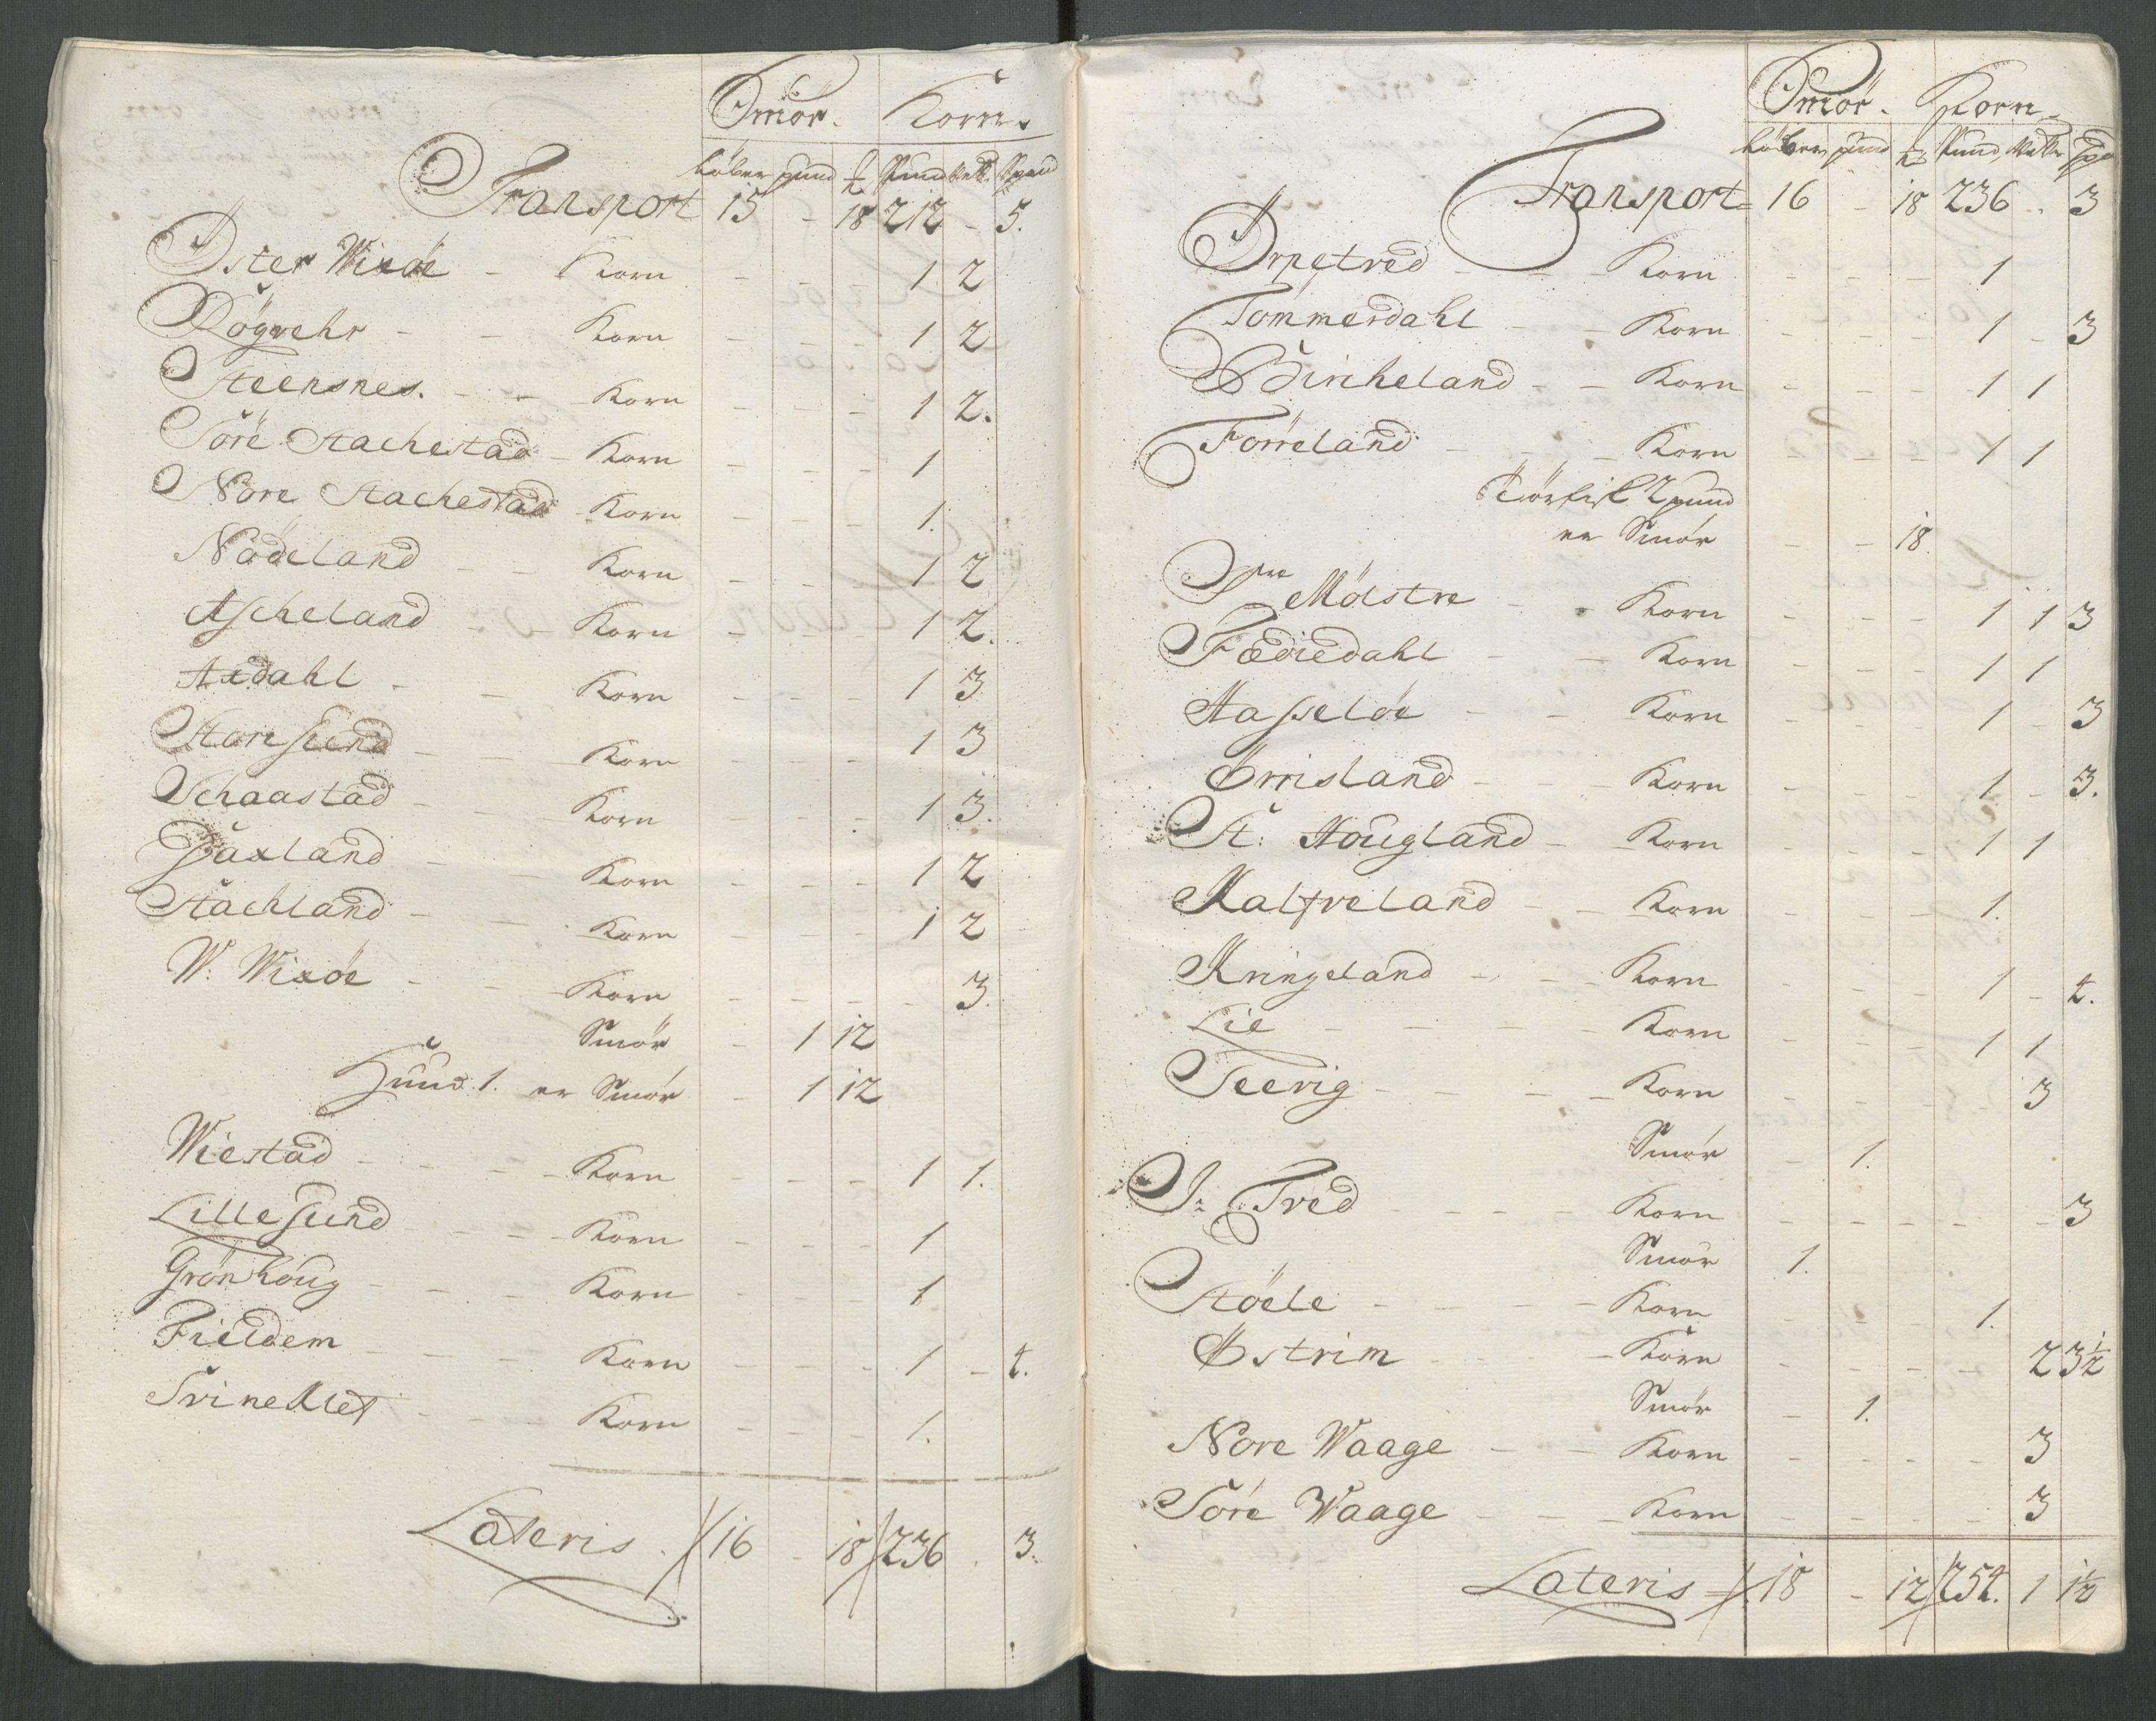 Smör. Korn.
Löber pund ℔ Pund Vett. Spand
Transport 15 - 18 212 - 5.
Öster Wixöe - Korn - - - 1 2
Rögvehr - - Korn - - - 1 2
Steensnes. - - Korn - - - 1 2.
Söre Stachestad - Korn - - - 1
Nore Stachestad - Korn - - - 1.
Nödeland - - Korn - - - 1 2
Ascheland - - Korn - - - 1 2.
Axdahl - - Korn - - - 1 3
Storesund - - Korn - - - 1 3
Schaastad - - Korn - - - 1 3.
Saxland - - Korn - - - 1 2
Stachland - - Korn - - - 1 2
W: Wixöe - - Korn - - - - 3.
Smör - 1 12
Huud 1. er Smör - 1 12
Wiestad - - - Korn - - - 1 1.
Lillesund - - - Korn - - - 1
Grönhoug - - - Korn - - - 1
Fieldem - - - Korn - - - 1 - 4.
Svineklet - - - Korn - - - 1.
Lateris. 16 - 18 236 . 3.
Smör. Korn.
Löber pund ℔ Pund, Vetter Spd
Transport 16 - 18 236 .. 3
Orpetved - - Korn - - - 1
Tömmerdahl - - Korn - - - 1 - 3
Bircheland - - Korn - - - 1 1
Förreland - - - Korn - - - 1 1
Törfisk 2 pund
er Smör - - 18.
Mölstre - - Korn - - - 1 1 3
Fædiedahl - - Korn - - - 1 1
Hasselöe - - Korn - - - 1 - 3
Örrisland - - - Korn - - - 1 - 3.
St: Hougland - - Korn - - - 1 1
Kalfveland - - Korn - - - 1.
Kringeland - - - Korn - - - 1 - 4.
Lie - - - - Korn - - - 1 1
Teevig - - - - Korn - - - - 3
Smör - 1.
I: Tved - - - - Korn - - - - - 3
Smör 1.
Stöele - - - - Korn - - - 1.
Østrim - - - - Korn - - - - 2 3½
Smör - 1.
Nore Waage - - Korn - - - - 3
Söre Waage - - - Korn - - - - 3
Lateris 18 - 12 254. 1 1½